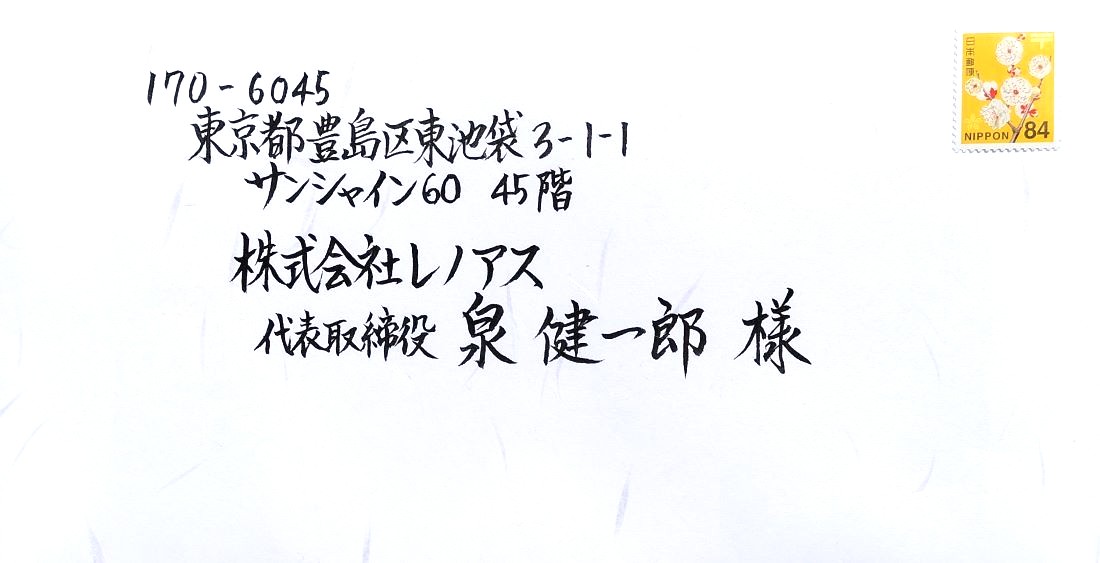 170-6045
東京都豊島区東池袋3-1-1
サンシャイン60 45階
株式会社レノアス
代表取締役 泉 健一郎 様
日本郵便
NIPPON 84